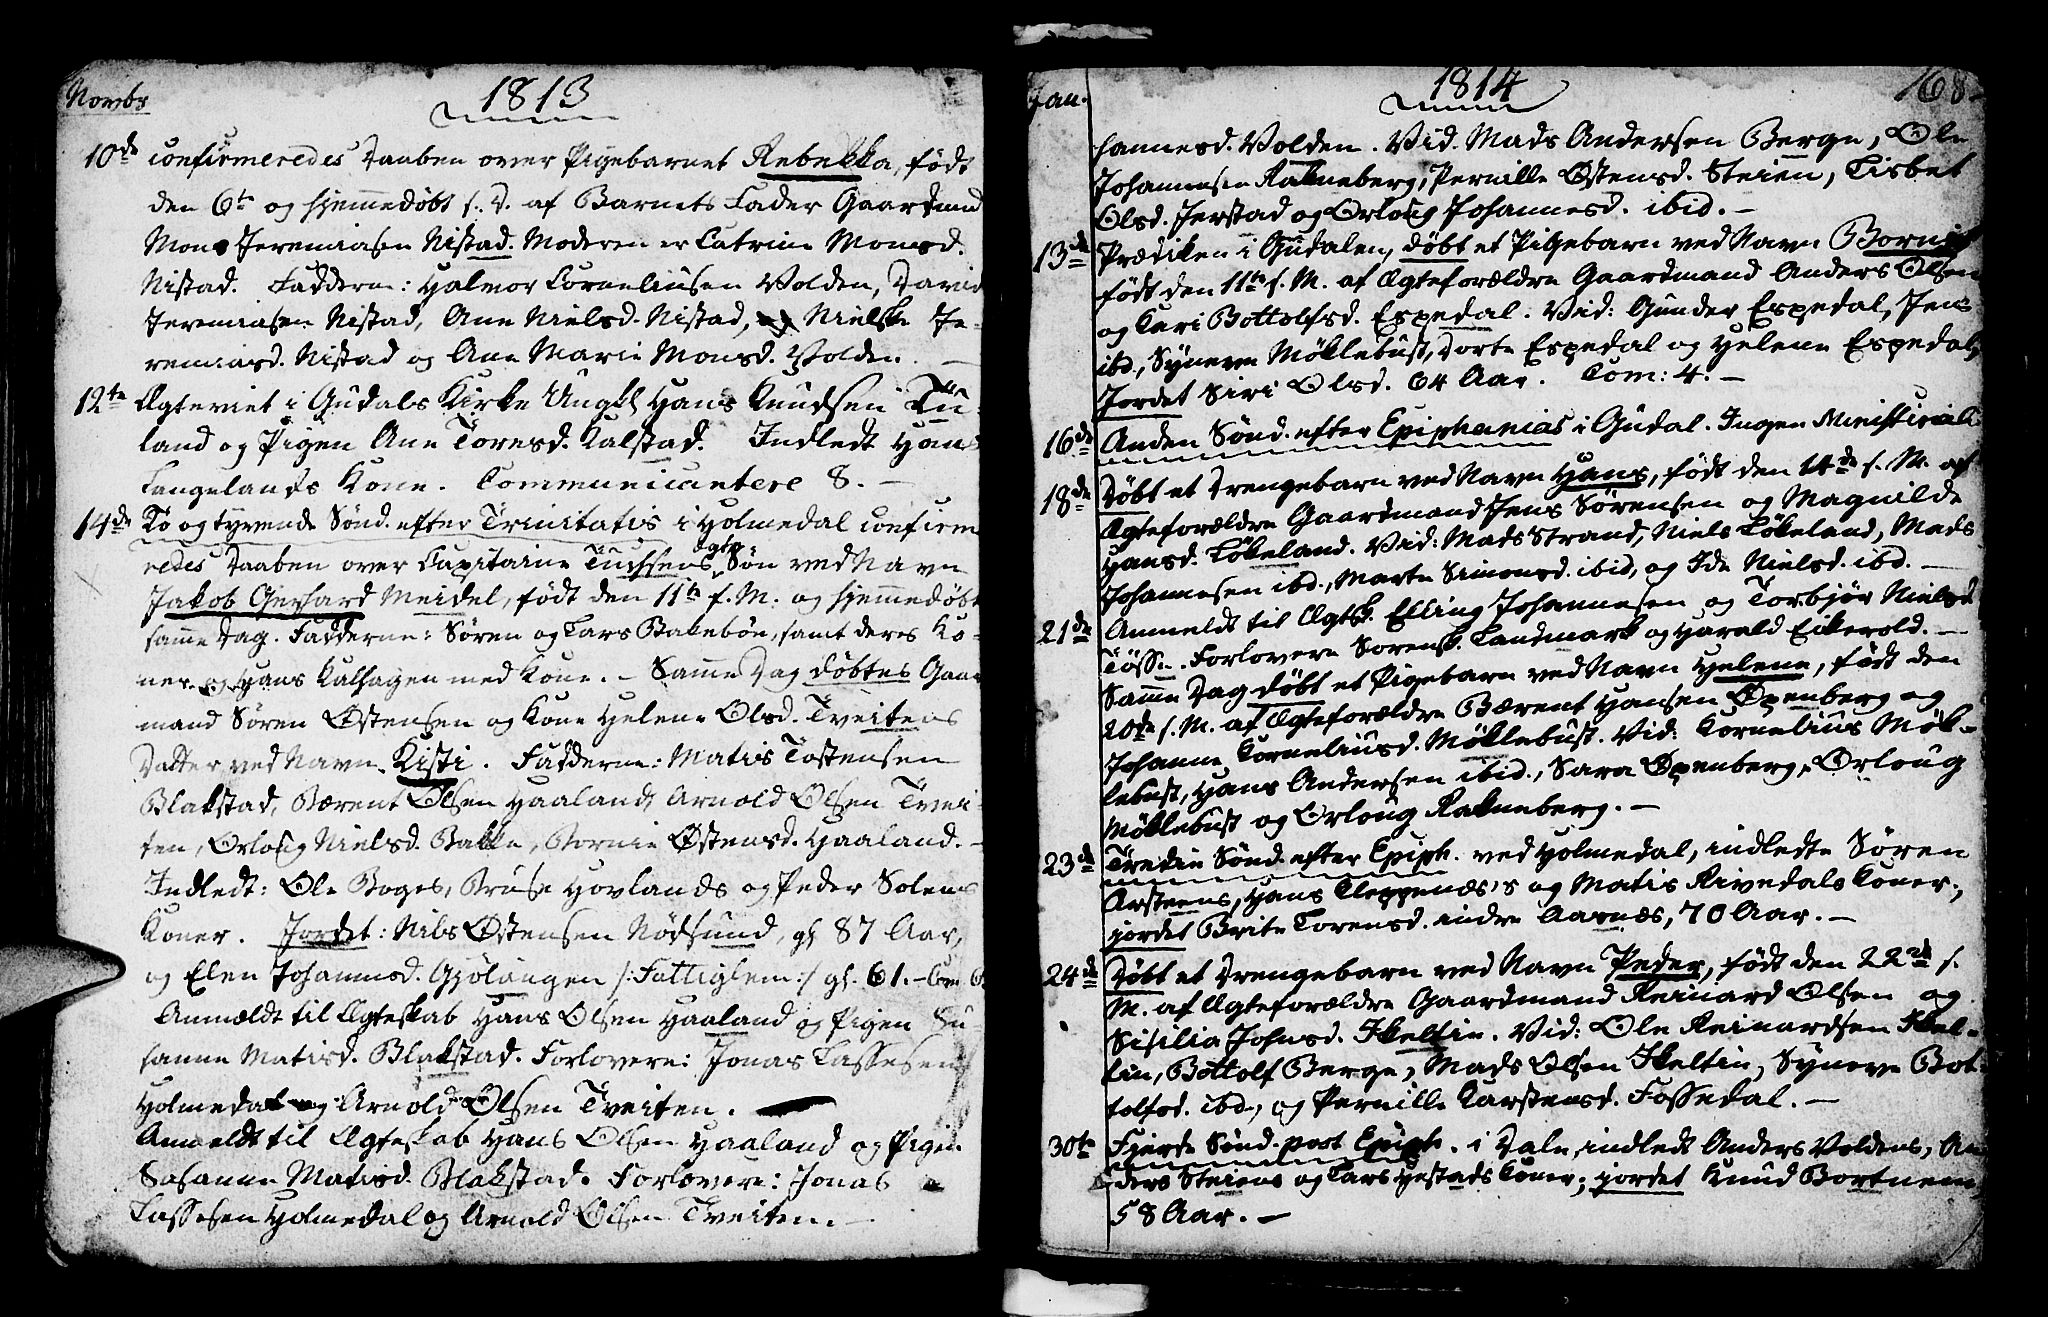 Novbr
1813
10de confirmeredes Daaben over Pigebarnet Rebekka, født
den 6te og hjemmedøbt s. D. af Barnets Fader Gaardmd
Mons Jeremiasen Nistad. Moderen er Catrine Monsd.
Nistad. Fadderne: Halvor Corneliusen Volden, David
Jeremiasen Nistad, Ane Nielsd. Nistad, og Nielske Je-
remiasd. Nistad og Ane Marie Monsd. Volden. —
12te Ægteviet i Gudals Kirke Ungk. Hans Knudsen Tu-
land og Pigen Ane Toresd. Kalstad. Indledt Hans
Langelands Kone. Communicantere 8. —
14de To og tyvende Sønd. efter Trinitatis i Holmedal confirme
redes Daaben over Capitaine Tuchsens ægte Søn ved Navn
Jakob Gerhard Meidel, født den 11te s. M. og hjemmedøbt
samme Dag. Fadderne: Søren og Lars Bakebøe, samt deres Ko-
ner og Hans Kalhagen med Kone. — Samme Dag døbtes Gaar
mand Søren Østensen og Kone Helene Olsd. Tveitens
Datter ved Navn Kisti. Fadderne: Matis Tostensen
Blakstad, Bærent Olsen Haaland, Arnold Olsen Tvei-
ten, Orloug Nielsd. Bakke, Bornie Østensd. Haaland. —
Indledt: Ole Boges, Bruse Hovlands og Peder Solens
Koner. Jordet: Nils Østensen Nødsund, gl. 87 Aar,
og Elen Johannesd. Gjølangen /: Fattiglem :/ gl. 61. —
Anmældt til Ægteskab Hans Olsen Haaland og Pigen Su-
sanne Matisd. Blakstad. Forlovere: Jonas Lassesen
Holmedal og Arnold Olsen Tveiten.
Anmeldt til Ægteskab Hans Olsen Haaland og Pigen
Sosanne Matisd. Blakstad. Forlovere: Jonas
Lassesen Holmedal og Arnold Olsen Tveiten. —
Jan.
1814
168
hannesd. Volden. Vid. Mads Andersen Berge, Ole
Johannesen Rakneberg, Pernille Østensd. Steien, Lisbet
Olsd. Jerstad og Orloug Johannesd. ibid. —
13de Prædiken i Gudalen, døbt et Pigebarn ved Navn Bornie
født den 11te s. M. af Ægteforældre Gaardmand Anders Olsen
og Kari Bottolfsd. Espedal. Vid: Gunder Espedal, Jens
ibd., Syneve Møklebust, Dorte Espedal og Helene Espedal,
Jordet Siri Olsd. 64 Aar. Com: 4. —
16de Anden Sønd. efter Epiphanias i Gudal. Ingen Ministerial.
18de Døbt et Drengebarn ved Navn Hans, født den 14de s. M. af
Ægteforældre Gaardmand Jens Sørensen og Magnilde
Hansd. Løkeland. Vid: Mads Strand, Niels Løkeland, Mads
Johannesen ibd., Marte Simonsd. ibid, og Ide Nielsd. ibd. —
21de Anmeldt til Ægtsk. Elling Johannesen og Torbjør Nielsd
Tøsse. Forlovere Sorensk. Landmark og Harald Eikerold. —
Samme Dag døbt et Pigebarn ved Navn Helene, født den
20de s. M. af Ægteforældre Bærent Hansen Øpenberg og
Johanne Korneliusd. Møklebust. Vid: Kornelius Møk-
lebust, Hans Andersen ibid., Sara Øpenberg, Orloug
Møklebust og Orloug Rakneberg. —
23de Tredie Sønd. efter Epiph. ved Holmedal, indledte Søren
Arsteens, Hans Cleppenæs's og Matis Rivedals Koner;
jordet Brite Toresd. indre Aarnæs, 70 Aar. —
24de Døbt et Drengebarn ved Navn Peder, født den 22de s.
M. af Ægteforældre Gaardmand Reinard Olsen og
Sisilia Johnsd. Ikeltin. Vid: Ole Reinardsen Ikel-
tin, Bottolf Berge, Mads Olsen Ikeltin, Syneve Bot-
tolfsd. ibd., og Pernille Karstensd. Fossedal. —
30te Fjerde Sønd. post Epiph. i Dale, indledt Anders Voldens, An
ders Steiens og Lars Hestads Koner; jordet Knud Bortnem,
58 Aar. —